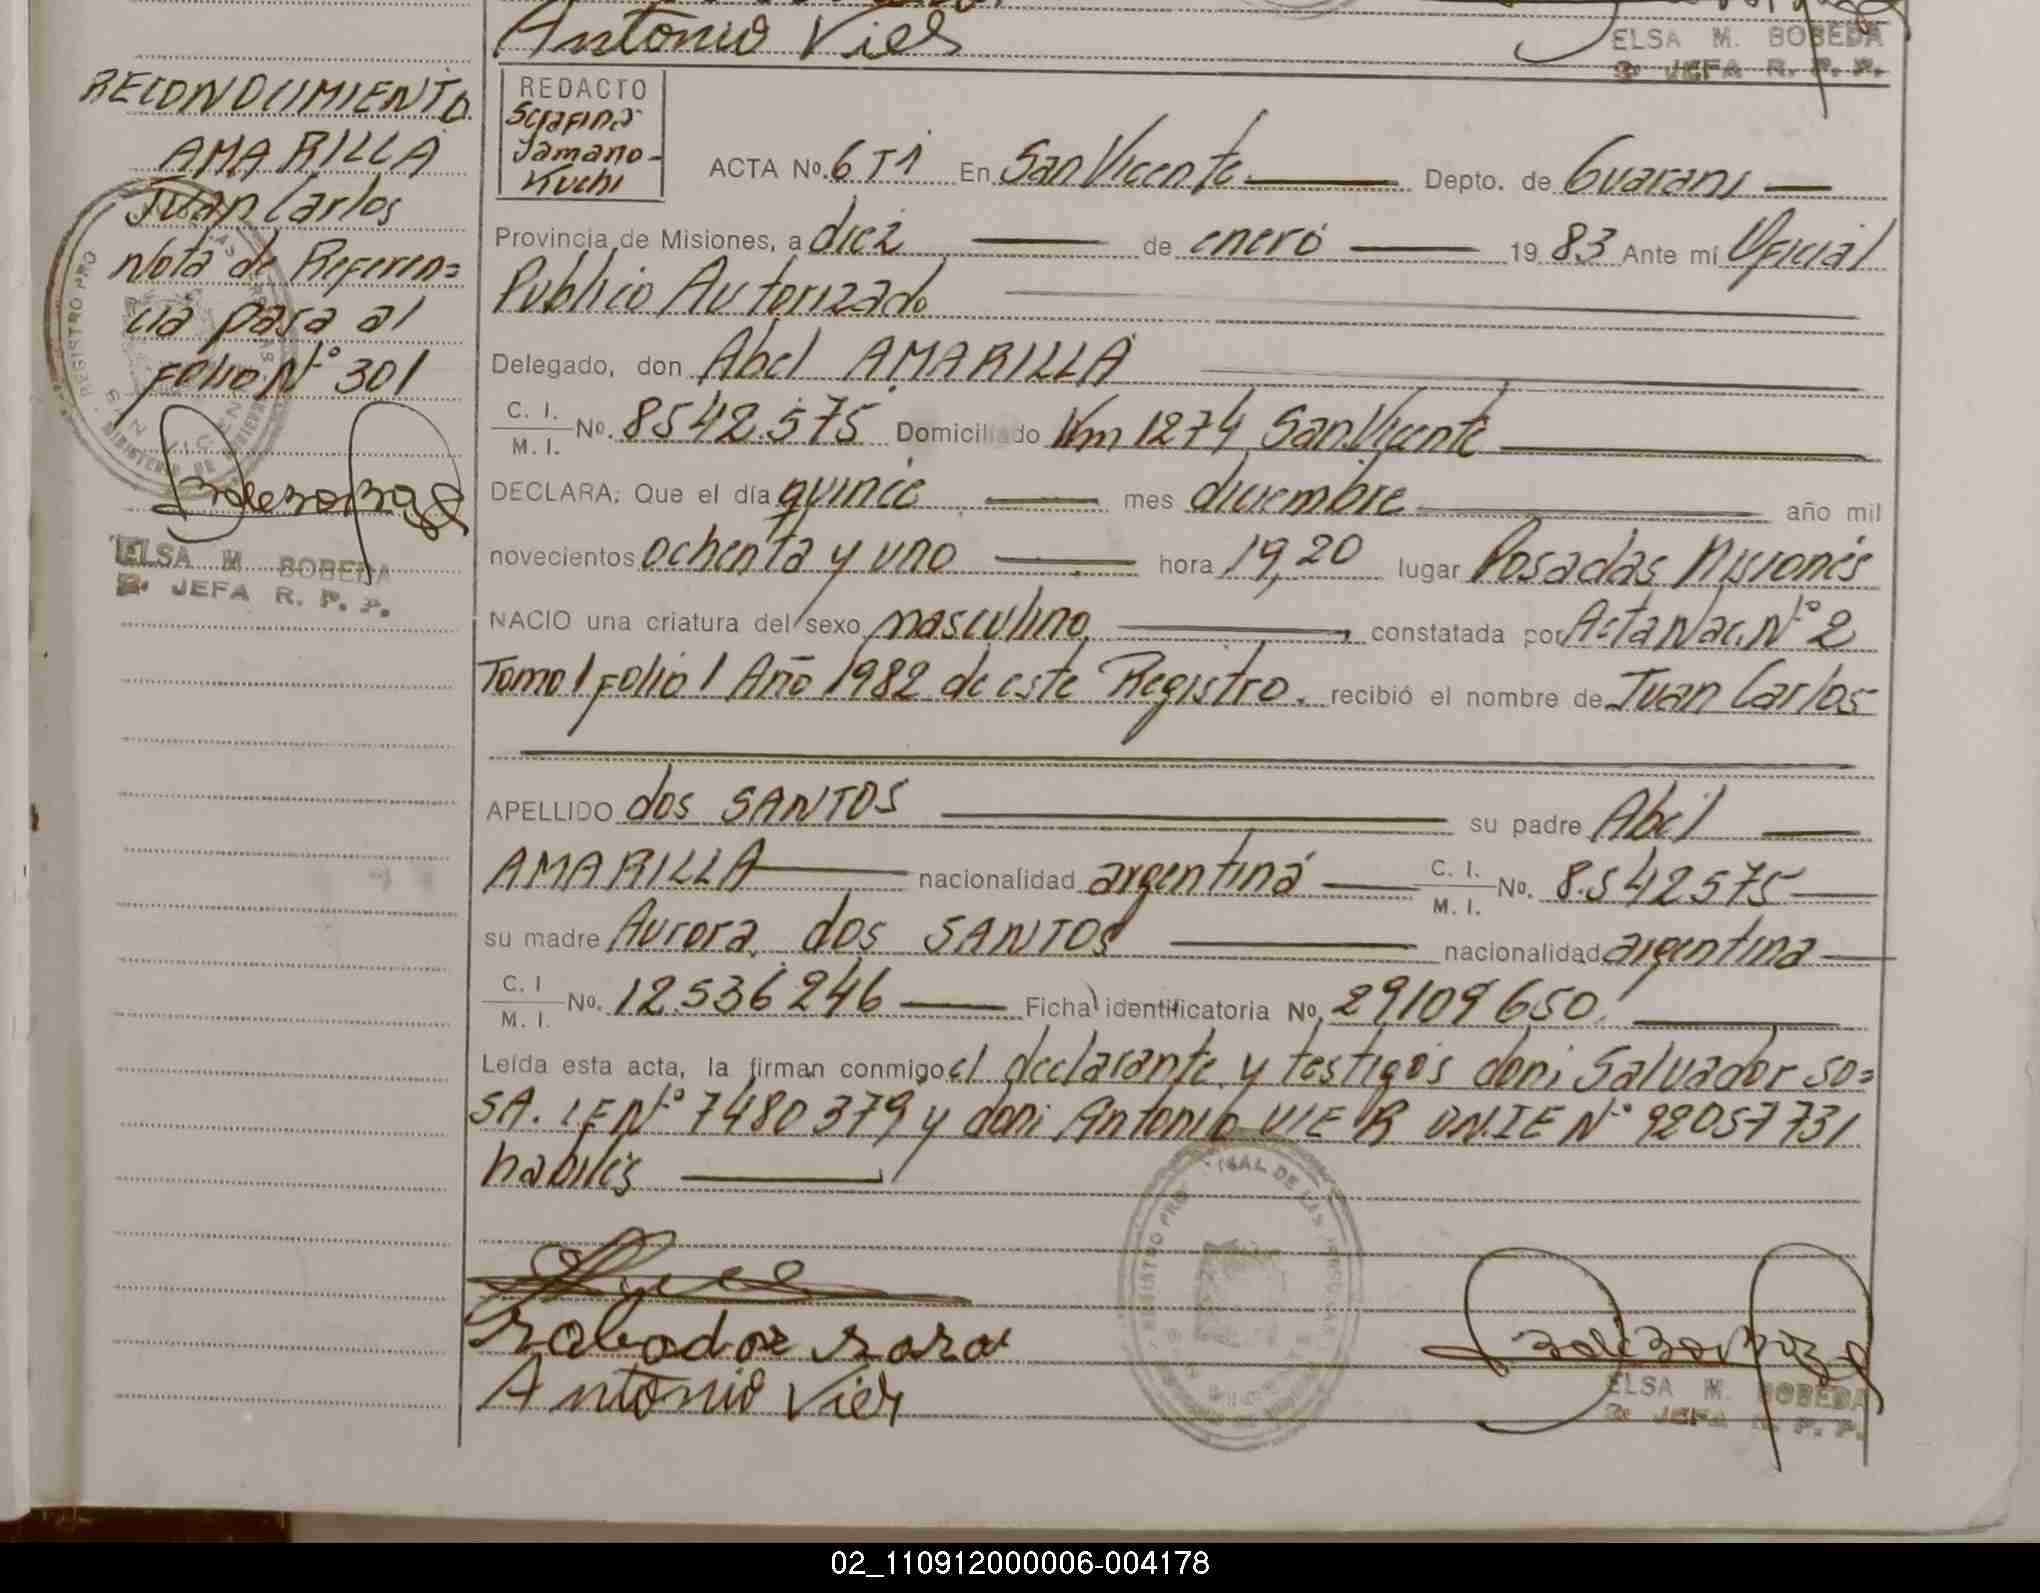 Antonio Vier
ELSA M. BOBEDA
2a JEFA R. P. P.
RECONOCIMIENTO
AMARILLA
Juan Carlos
Nota de Referen=
cia pasa al
Folio Nº 301
ELSA M BOBEDA
2a JEFA R. P. P.
REDACTO
Serafina
Tamano-
Kuchi
ACTA No. 6 T1 En San Vicente Depto. de Guarani
Provincia de Misiones, a diez de enero 1983 Ante mí Oficial
Publico Autorizado
Delegado, don Abel AMARILLA
C. I.
M. I.
No. 8542.575 Domiciliado Km 1274 San Vicente
DECLARA: Que el día quince mes diciembre año mil
novecientos ochenta y uno hora 19,20 lugar Posadas Misiones
NACIO una criatura del sexo masculino, constatada por Acta Nac. Nº 2
Tomo 1 Folio 1 Año 1982 de este Registro. recibió el nombre de Juan Carlos
APELLIDO dos SANTOS su padre Abel
AMARILLA nacionalidad argentina C. I. M. I. No. 8.542575
su madre Aurora dos SANTOS nacionalidad argentina
C. I
M. I.
No. 12.536246 Ficha identificatoria No. 29109650
Leída esta acta, la firman conmigo el declarante y testigos don: Salvador SO=
SA. LE Nº 7480379 y don: Antonio VIER DNIE Nº 92057731
habiles
REGISTRO PRO
Salbador Sosa
Antonio Vier
ELSA M. BOBEDA
2a JEFA R. P. P.
02_110912000006-004178